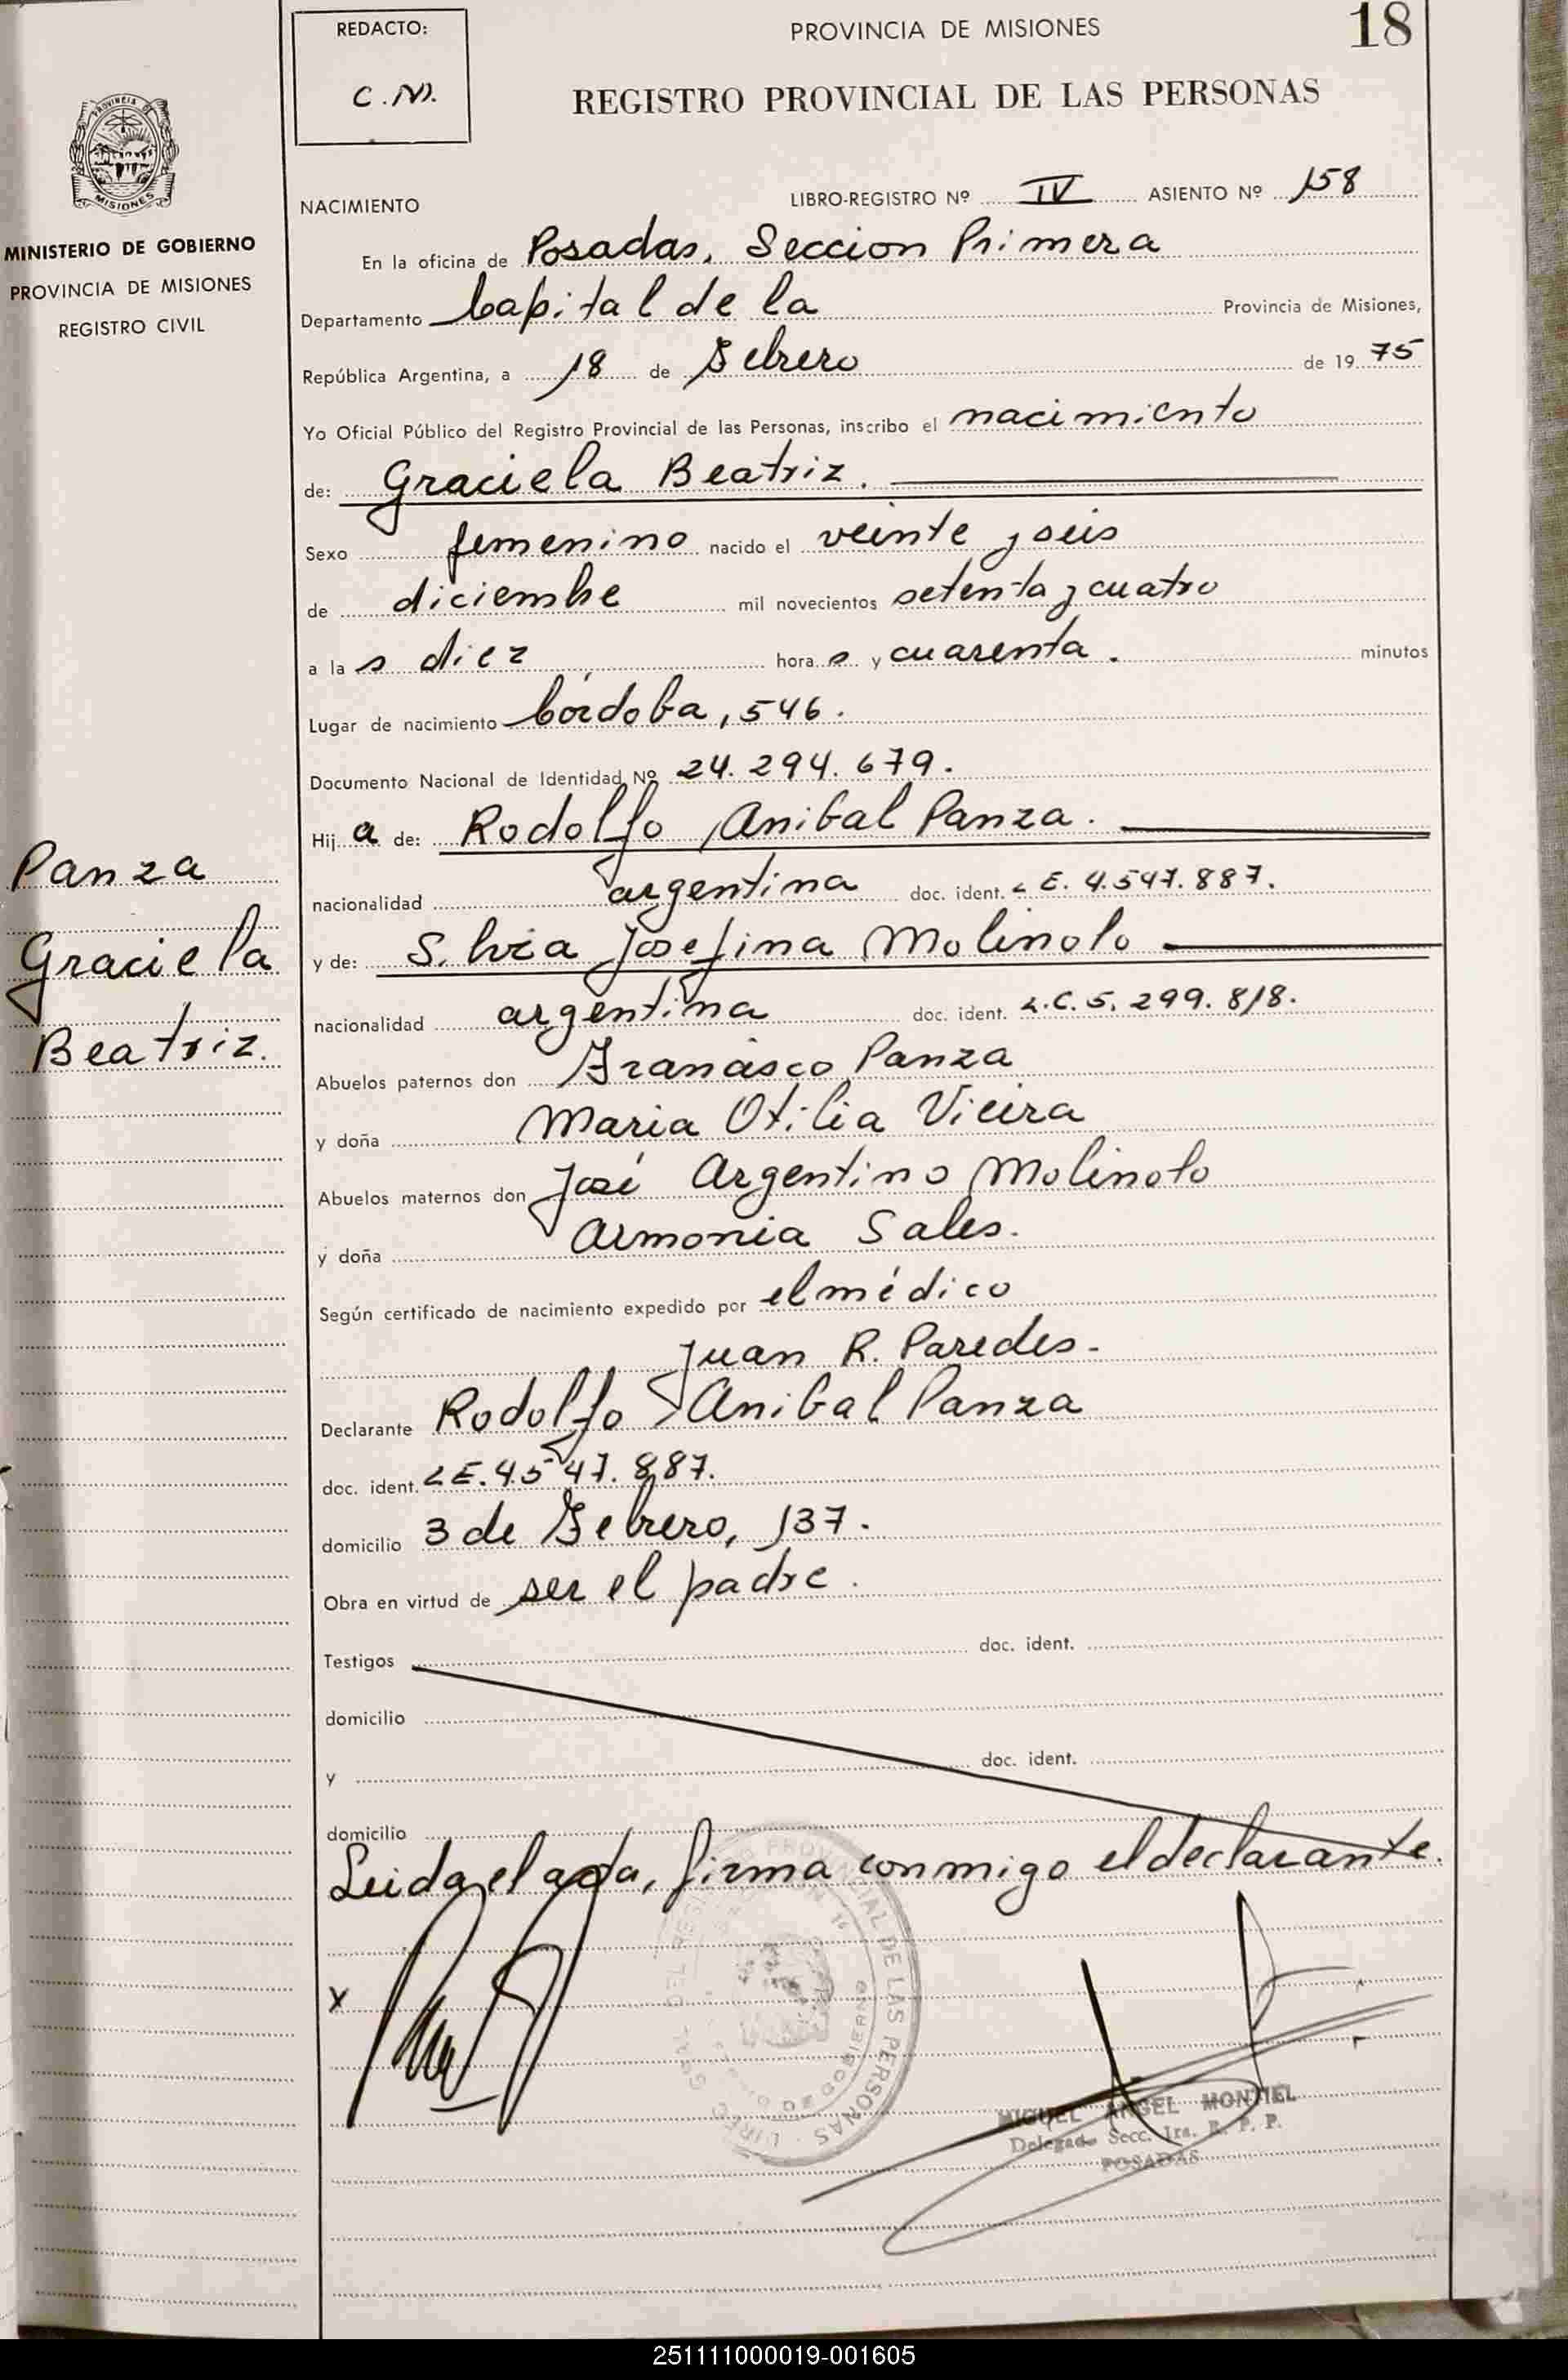 REDACTO:
C.N.
PROVINCIA DE MISIONES
18
REGISTRO PROVINCIAL DE LAS PERSONAS
PROVINCIA DE
MISIONES
MINISTERIO DE GOBIERNO
PROVINCIA DE MISIONES
REGISTRO CIVIL
NACIMIENTO LIBRO-REGISTRO Nº IV ASIENTO Nº 158
En la oficina de Posadas, Seccion Primera
Departamento Capital de la Provincia de Misiones,
República Argentina, a 18 de Febrero de 19 75
Yo Oficial Público del Registro Provincial de las Personas, inscribo el nacimiento
de: Graciela Beatriz.
Sexo femenino nacido el veinte y seis
de diciembre mil novecientos setenta y cuatro
a la s diez hora s y cuarenta. minutos
Lugar de nacimiento Córdoba, 546.
Documento Nacional de Identidad Nº 24.294.679.
Hij a de: Rodolfo Anibal Panza.
nacionalidad argentina doc. ident. L E. 4.547.887.
y de: Silvia Josefina Molinolo
nacionalidad argentina doc. ident. L.C. 5.299.818.
Abuelos paternos don Francisco Panza
y doña Maria Otilia Vieira
Abuelos maternos don José Argentino Molinolo
y doña Armonia Sales.
Según certificado de nacimiento expedido por el médico
Juan R. Paredes.
Declarante Rodolfo Anibal Panza
doc. ident. L E. 4.547.887.
domicilio 3 de Febrero, 137.
Obra en virtud de ser el padre.
Testigos doc. ident.
domicilio
y doc. ident.
domicilio
Leida el acta, firma conmigo el declarante.
X
Panza
Graciela
Beatriz.
MIGUEL ANGEL MONTIEL
Delegado Secc. 1ra. R. P. P.
POSADAS
PROVINCIAL DE LAS PERSONAS
GOBIERNO
251111000019-001605